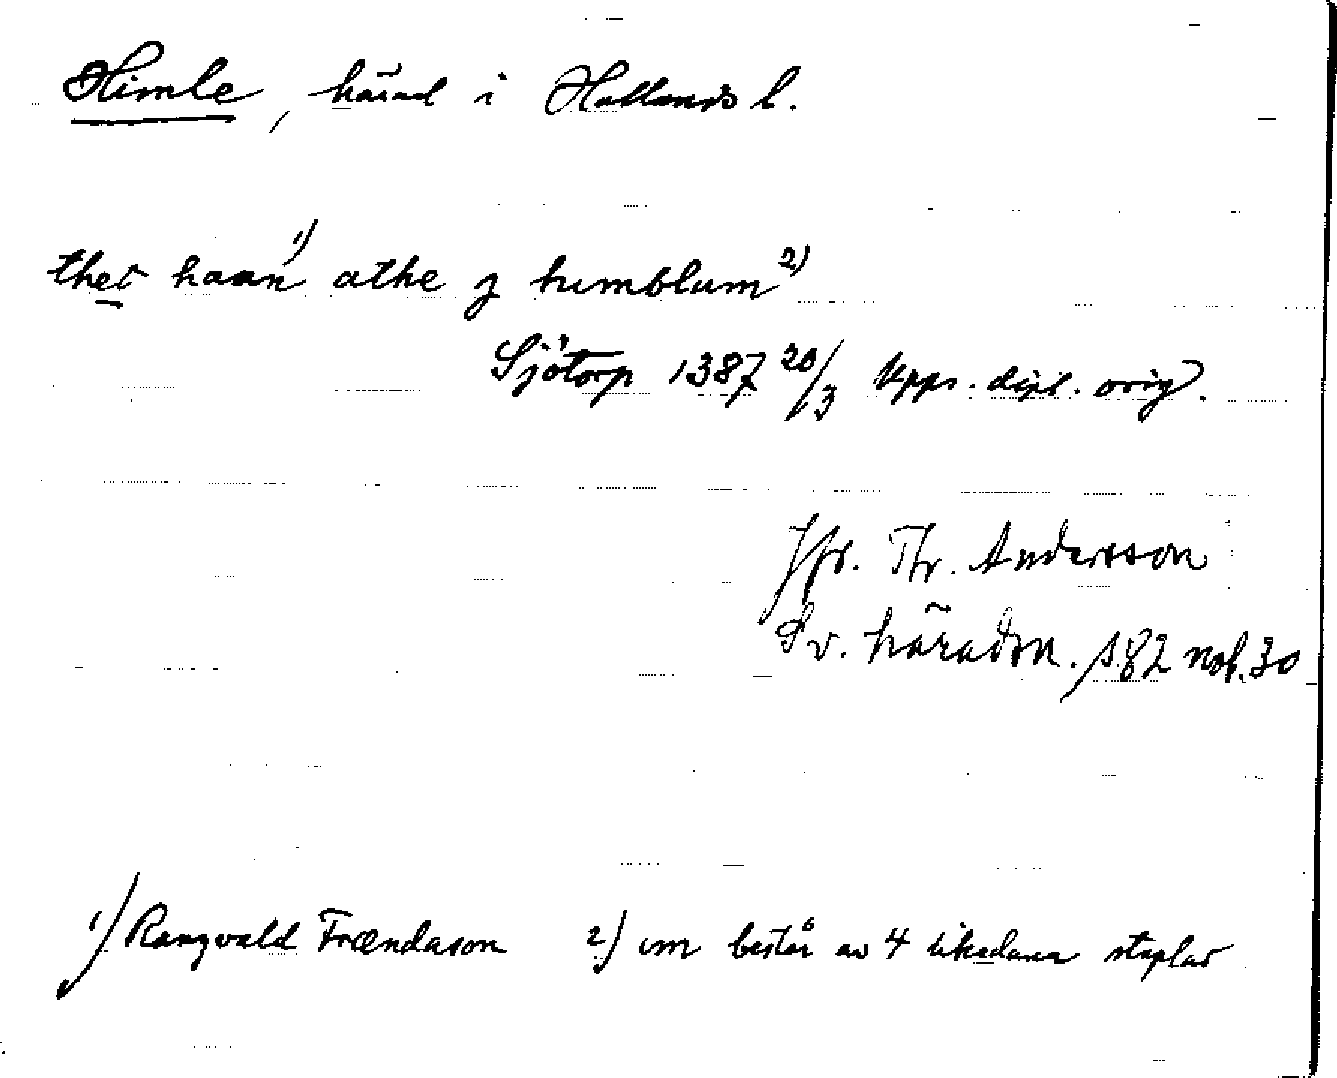 Himle, härad i Hallands l.
ther haan 1) athe j humblum 2)
Sjötorp 1387 20/3 Upps. dipl. orig.
Jfr. Thr. Andersson
Sv. häradsn. s. 82 not. 30
1) Rangvald Frændason 2) um består av 4 likadana staplar